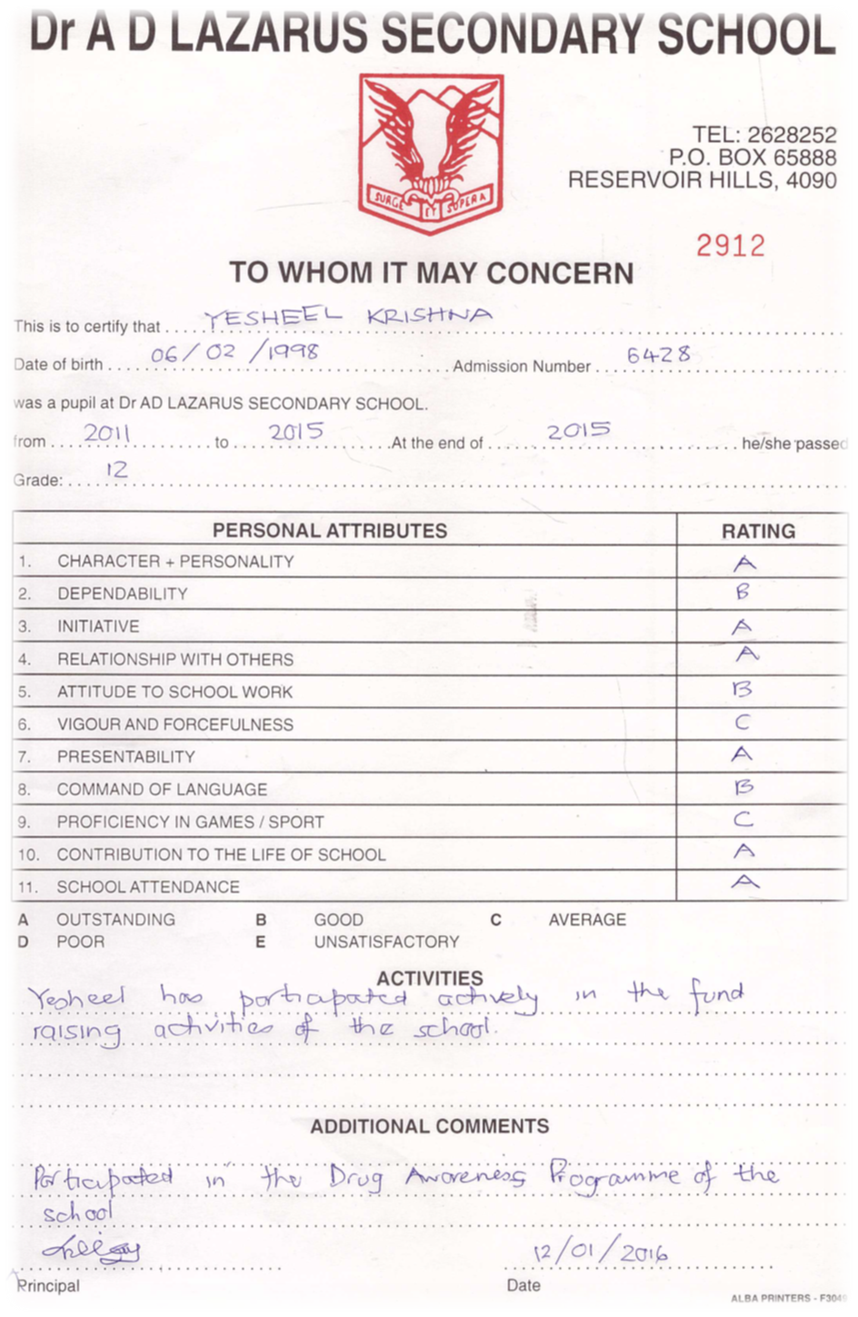 Dr A D LAZARUS SECONDARY SCHOOL
SURGE ET SUPERA
TEL: 2628252
P.O. BOX 65888
RESERVOIR HILLS, 4090
2912
TO WHOM IT MAY CONCERN
This is to certify that YESHEEL KRISHNA
Date of birth 06/02/1998 Admission Number 6428
was a pupil at Dr AD LAZARUS SECONDARY SCHOOL.
from 2011 to 2015 At the end of 2015 he/she passed
Grade: 12
PERSONAL ATTRIBUTES RATING
1. CHARACTER + PERSONALITY A
2. DEPENDABILITY B
3. INITIATIVE A
4. RELATIONSHIP WITH OTHERS A
5. ATTITUDE TO SCHOOL WORK B
6. VIGOUR AND FORCEFULNESS C
7. PRESENTABILITY A
8. COMMAND OF LANGUAGE B
9. PROFICIENCY IN GAMES / SPORT C
10. CONTRIBUTION TO THE LIFE OF SCHOOL A
11. SCHOOL ATTENDANCE A
A OUTSTANDING B GOOD C AVERAGE
D POOR E UNSATISFACTORY
ACTIVITIES
Yesheel has participated actively in the fund
raising activities of the school.
ADDITIONAL COMMENTS
Participated in the Drug Awareness Programme of the
school
12/01/2016
Principal Date
ALBA PRINTERS -